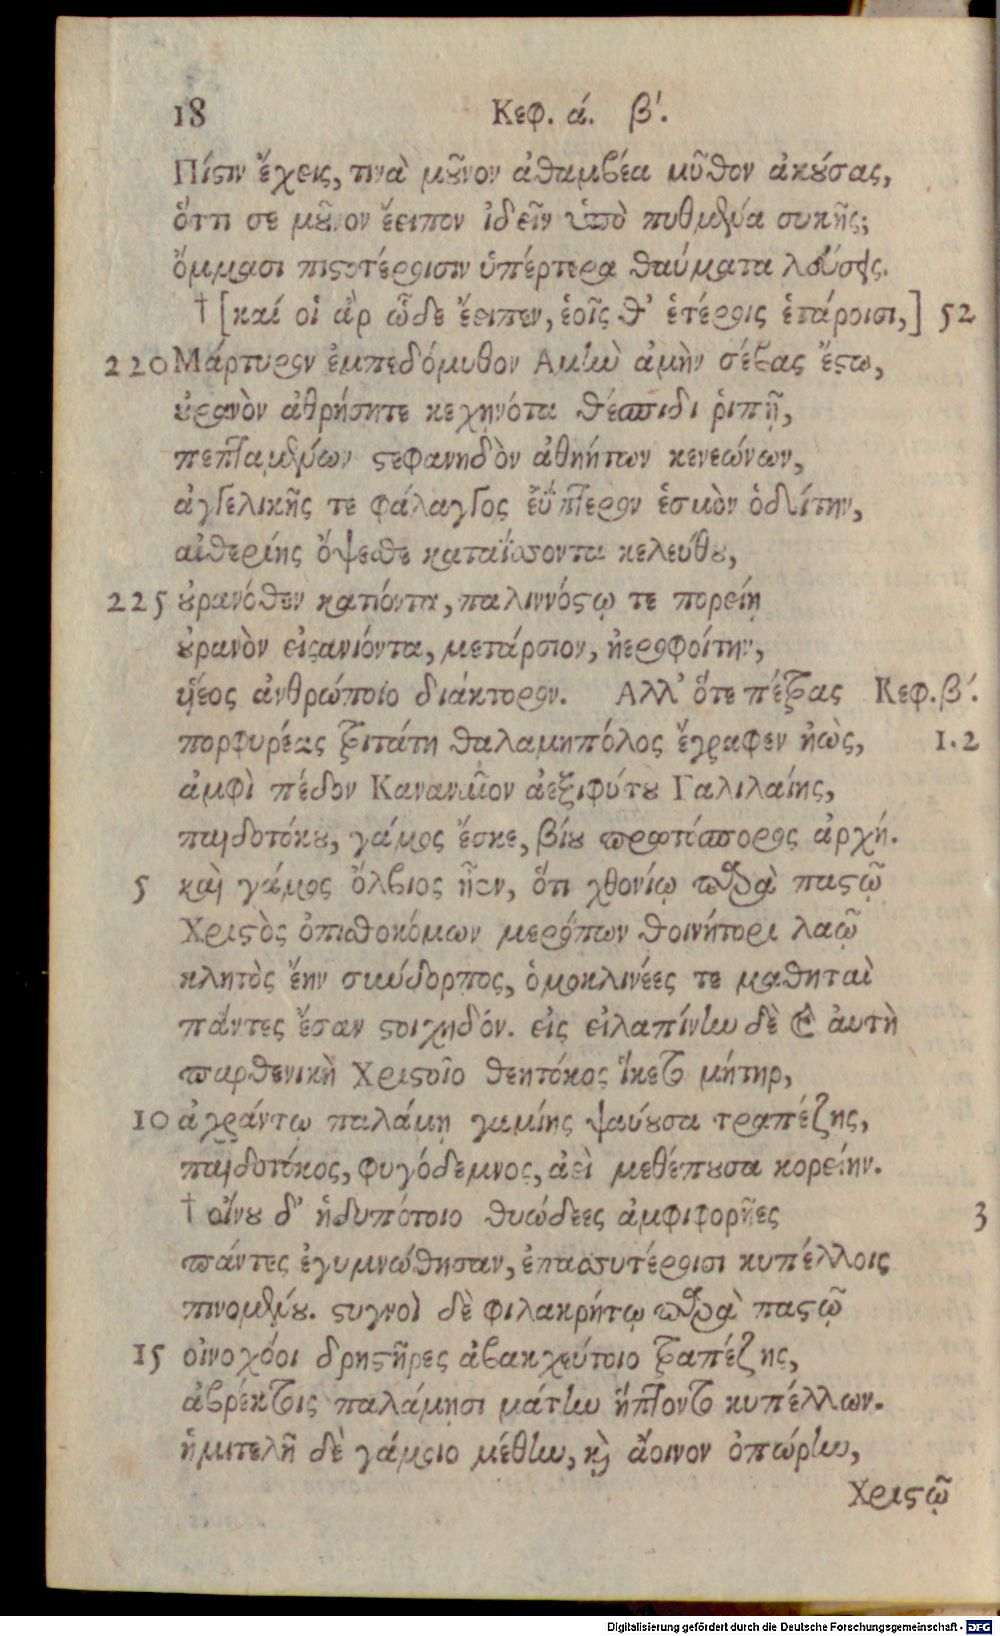 18 Κεφ. ά. β'.
Πίστιν ἔχεις, τινὰ μοῦνον ἀθαμβέα μῦθον ἀκούσας,
ὅττι σε μοῦνον ἔειπον ἰδεῖν ὑπὸ πυθμένα συκῆς;
ὄμμασι πιστοτέροισιν ὑπέρτερα θαύματα λεύσσῃς.
† [καί οἱ ἂρ ὧδε ἔειπεν, ἑοῖς θ' ἑτέροις ἑτάροισι,] 52
220 Μάρτυρον ἐμπεδόμυθον Αμὴν ἀμὴν σέβας ἔστω,
οὐρανὸν ἀθρήσητε κεχηνότα θέσπιδι ῥιπῇ,
πεπταμένων στεφανηδὸν ἀθηήτων κενεώνων,
ἀγγελικῆς τε φάλαγγος ἐΰπτερον ἑσμὸν ὁδίτην,
αἰθερίης ὄψεσθε καταΐσσοντα κελεύθου,
225 οὐρανόθεν κατιόντα, παλιννόστῳ τε πορείῃ
οὐρανὸν εἰσανιόντα, μετάρσιον, ἠεροφοίτην,
υἷεος ἀνθρώποιο διάκτορον. Αλλ' ὅτε πέζας Κεφ. β'.
πορφυρέας τριτάτη θαλαμηπόλος ἔγραφεν ἠὼς, 1. 2
ἀμφὶ πέδον Καναναῖον ἀεξιφύτου Γαλιλαίης,
παιδοτόκου, γάμος ἔσκε, βίου πρωτόσπορος ἀρχή.
5 καὶ γάμος ὄλβιος ἦεν, ὅτι χθονίῳ παρὰ παστῷ
Χριστὸς ὀπισθοκόμων μερόπων θοινήτορι λαῷ
κλητὸς ἔην σύνδορπος, ὁμοκλινέες τε μαθηταὶ
πάντες ἔσαν στοιχηδόν. εἰς εἰλαπίνην δὲ καὶ ἀυτὴ
παρθενικὴ Χριστοῖο θεητόκος ἵκετο μήτηρ,
10 ἀχράντῳ παλάμῃ γαμίης ψαύουσα τραπέζης,
παιδοτόκος, φυγόδεμνος, ἀεὶ μεθέπουσα κορείην.
† οἴνου δ' ἡδυπότοιο θυώδεες ἀμφιφορῆες 3
πάντες ἐγυμνώθησαν, ἐπασσυτέροισι κυπέλλοις
πινομένου. στυγνοὶ δὲ φιλακρήτῳ παρὰ παστῷ
15 οἰνοχόοι δρηστῆρες ἀβακχεύτοιο τραπέζης,
ἀβρέκτοις παλάμησι μάτην ἥπτοντο κυπέλλων.
ἡμιτελῆ δὲ γάμοιο μέθην, καὶ ἄοινον ὀπώρην,
Χριστῷ
Digitalisierung gefördert durch die Deutsche Forschungsgemeinschaft - DFG